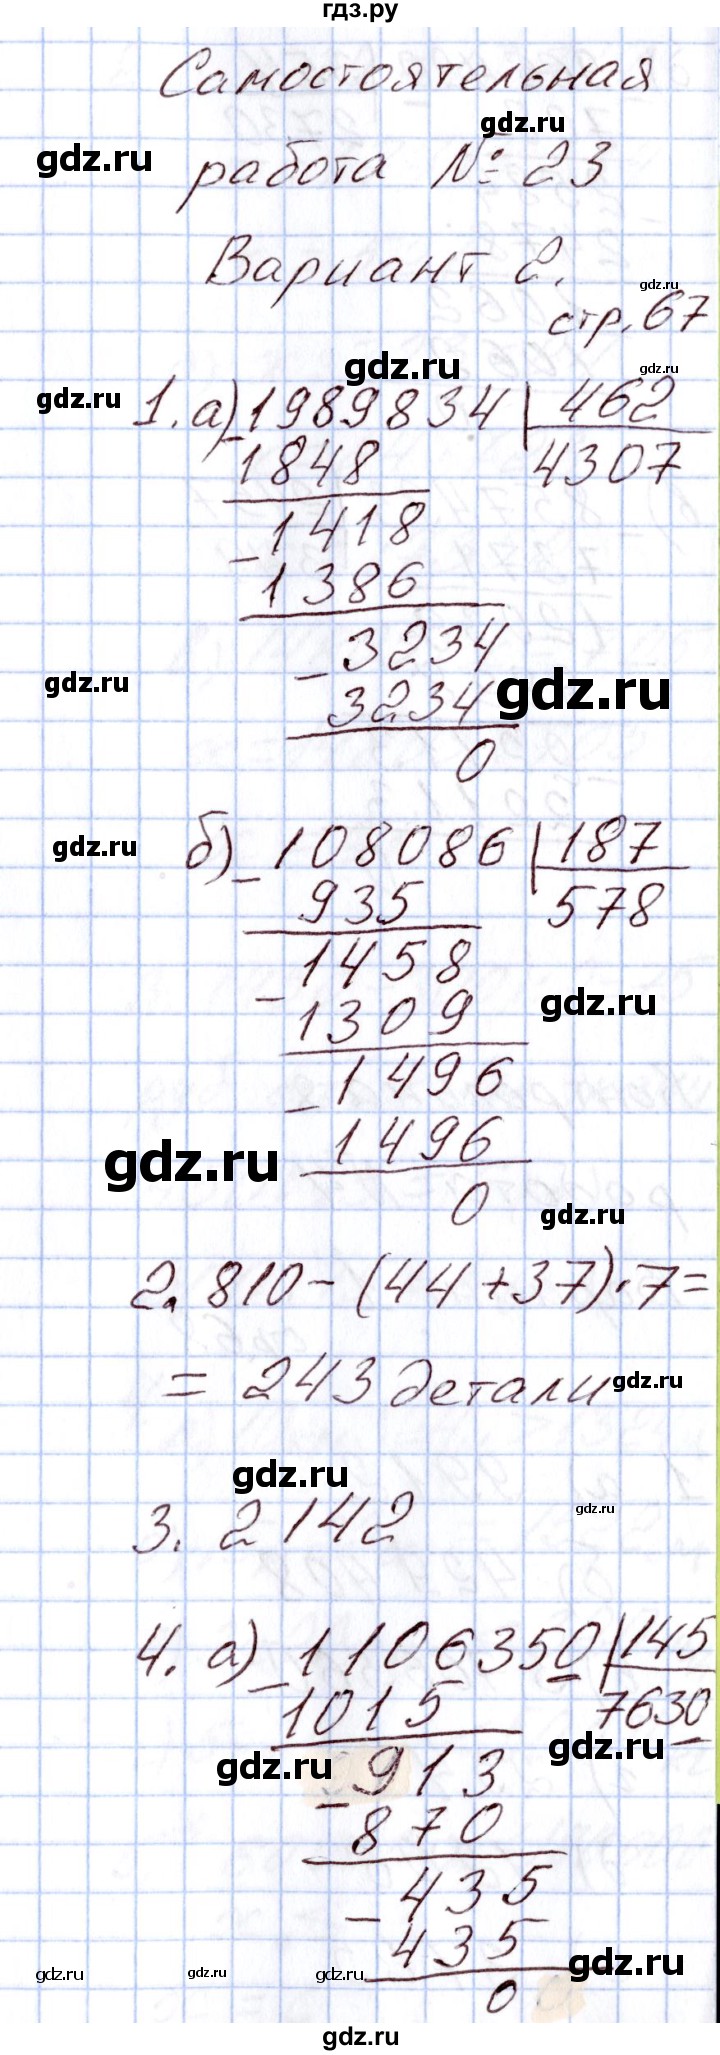 гдз.ру
Самостоятельная
gdz.ru
gdz.ru
работа № 23
Вариант 2.
gdz.ru
стр. 67
gdz.ru
gdz.ru
gdz.ru
1. а) 1989834 | 462
- 1848 4307
1418
- 1386
3234
- 3234
gdz.ru
gdz.ru
0
б) 108086 | 187
gdz.ru
- 935 578
1458
- 1309
gdz.ru
1496
- 1496
gdz.ru
0
gdz.ru
2. 810 - (44 + 37) · 7 =
= 243 детали
gdz.ru
gdz.ru
gdz.ru
3. 2142
4. а) 1106350 | 145
- 1015 7630
gdz.ru
gdz.ru
913
- 870
435
- 435
gdz.ru
gdz.ru
gdz.ru
gdz.ru
0
gdz.ru